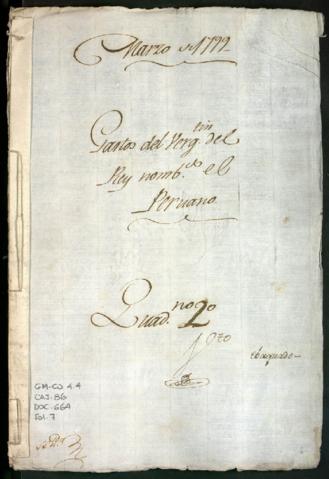 Marzo de 1799
Gastos del Verg.tin del
Rey nomb.do el
Peruano
Quad.no 2o
GM-CO 4.4
CAJ. 86
DOC. 664
Fol. 7